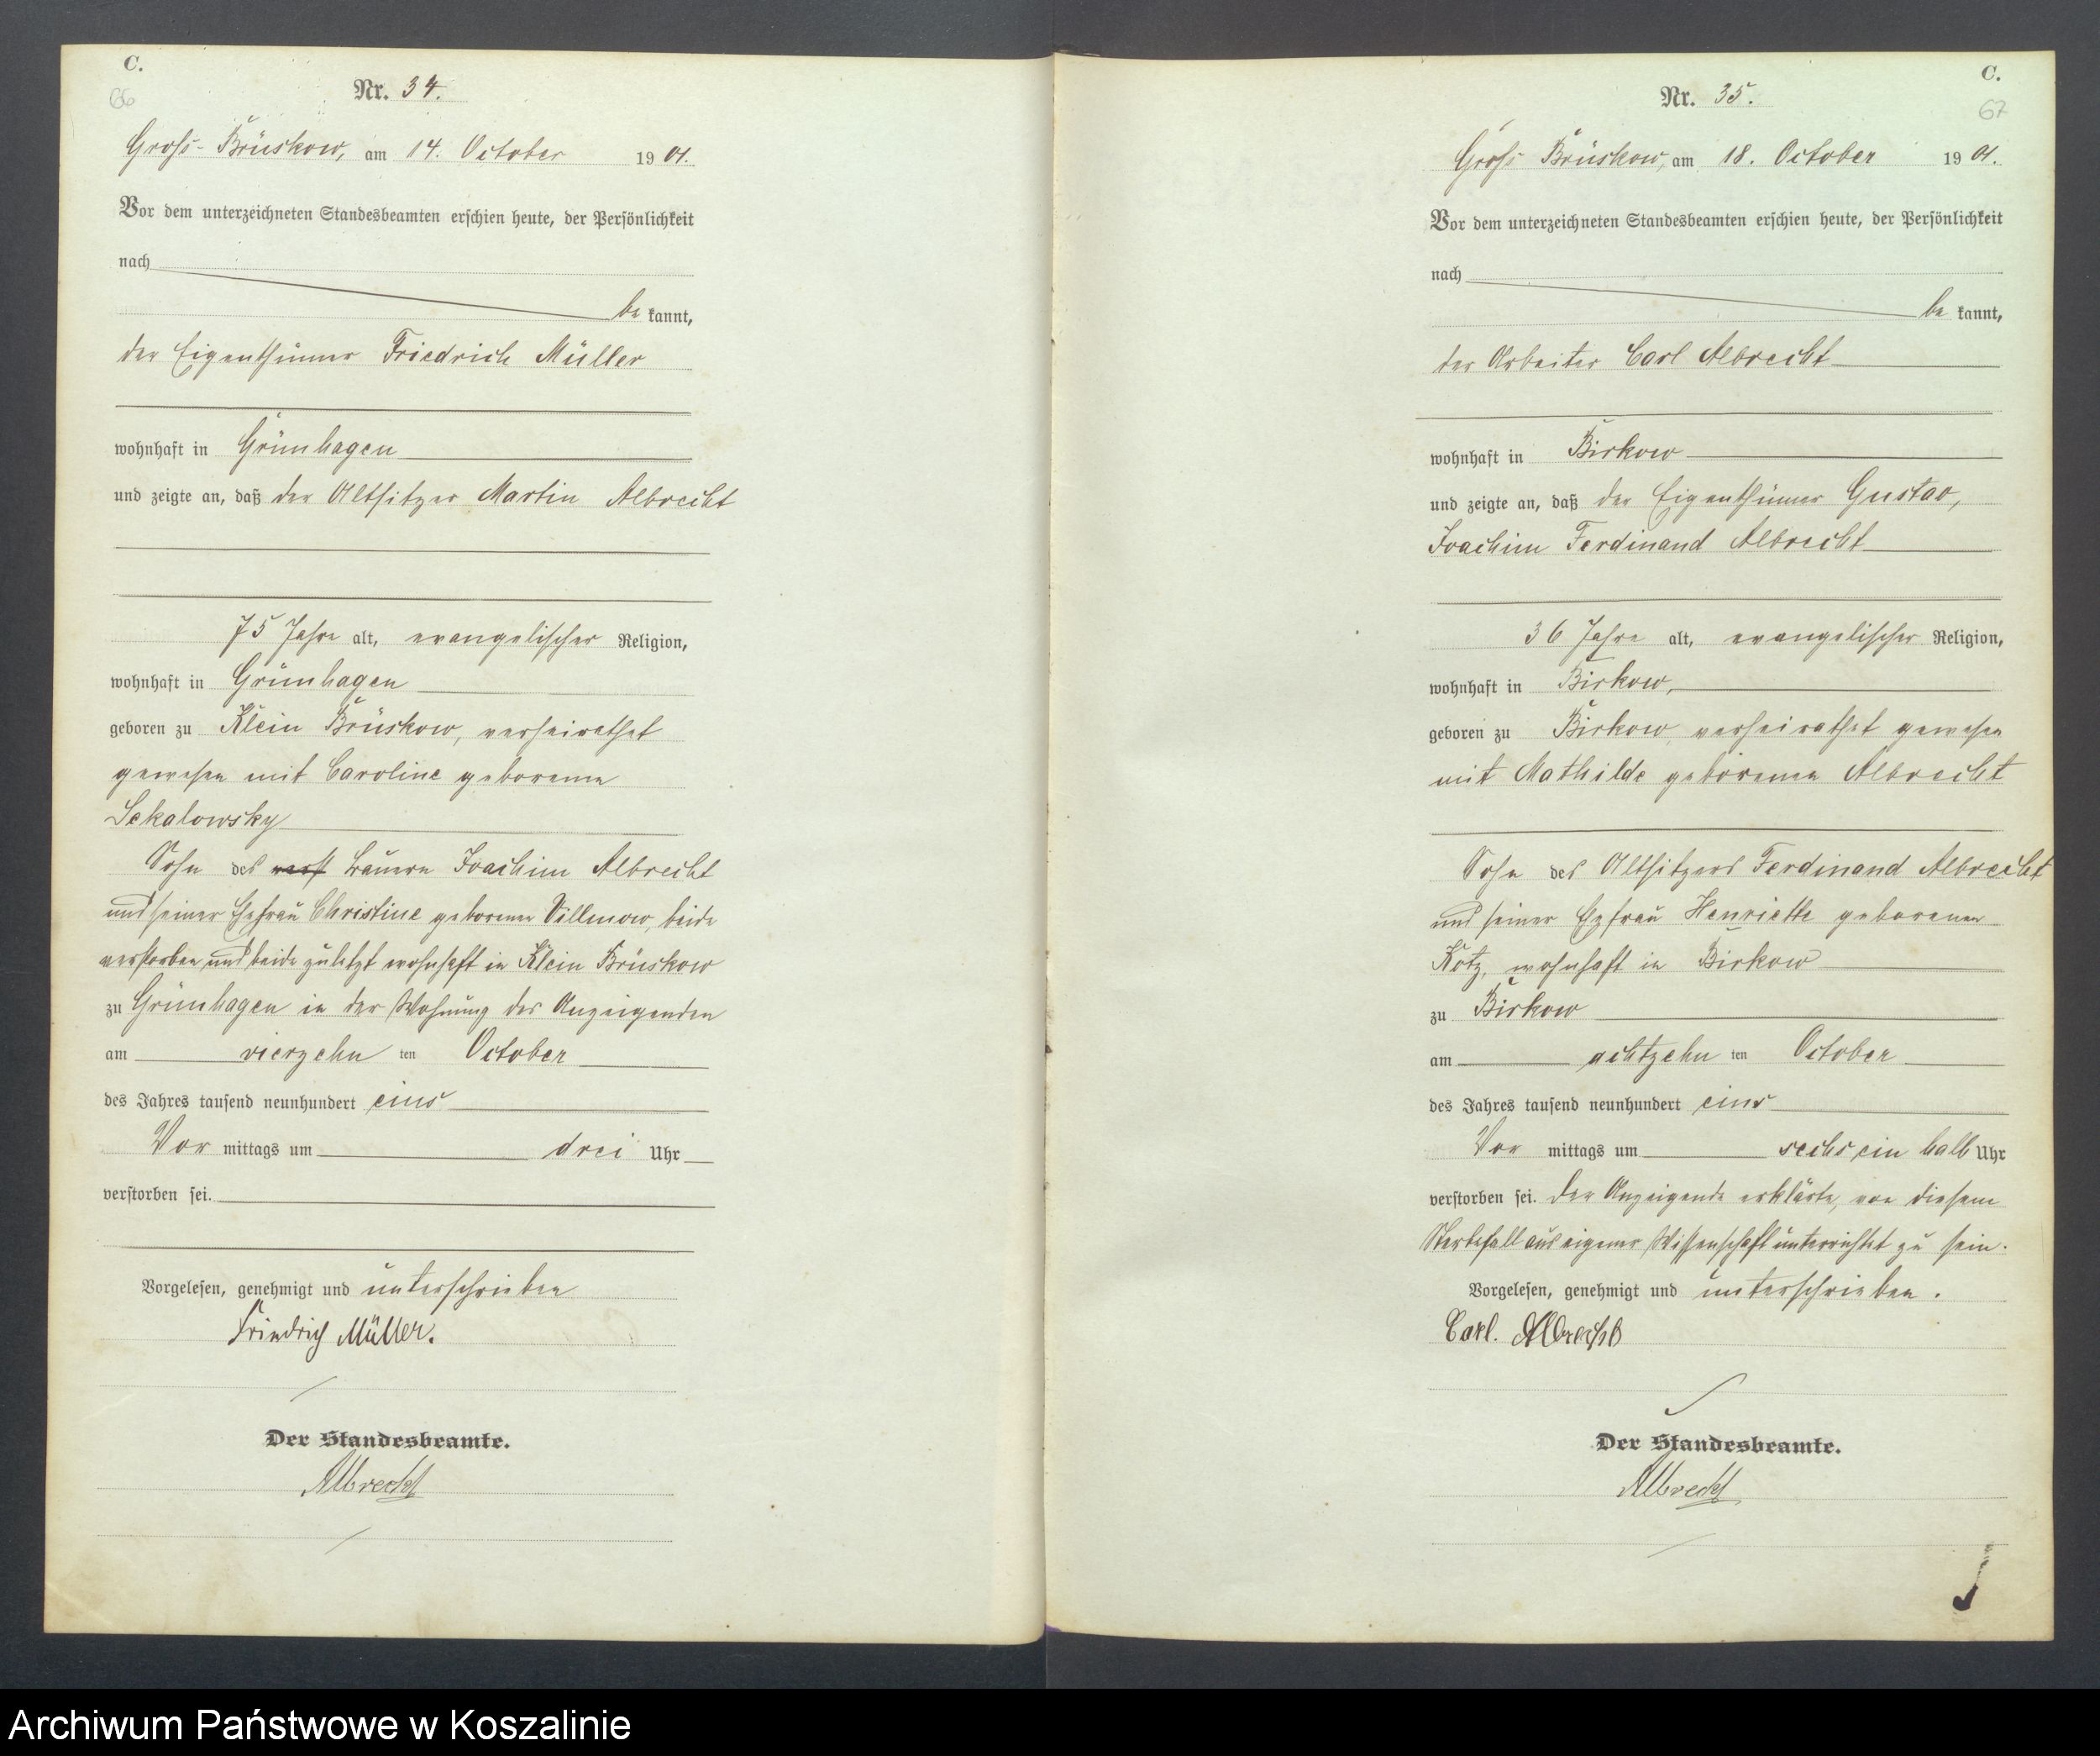 C.
66
Nr. 34.
Gross-Brüskow, am 14. October 1901.
Vor dem unterzeichneten Standesbeamten erschien heute, der Persönlichkeit
nach
be kannt,
der Eigenthümer Friedrich Müller
wohnhaft in Grünhagen
und zeigte an, daß der Altsitzer Martin Albrecht
75 Jahre alt, evangelischer Religion,
wohnhaft in Grünhagen
geboren zu Klein Brüskow, verheirathet
gewesen mit Caroline geborenen
Sekalowsky
Sohn des Bauern Joachim Albrecht
und seiner Ehefrau Christine geborenen Villmow, beide
verstorben und beide zuletzt wohnhaft in Klein Brüskow
zu Grünhagen in der Wohnung des Anzeigenden
am vierzehn ten October
des Jahres tausend neunhundert eins
Vor mittags um drei Uhr
verstorben sei.
Vorgelesen, genehmigt und unterschrieben
Friedrich Müller.
Der Standesbeamte.
Albrecht
C.
67
Nr. 35.
Gross Brüskow, am 18. October 1901.
Vor dem unterzeichneten Standesbeamten erschien heute, der Persönlichkeit
nach
be kannt,
der Arbeiter Carl Albrecht
wohnhaft in Birkow
und zeigte an, daß der Eigenthümer Gustav,
Joachim Ferdinand Albrecht
36 Jahre alt, evangelischer Religion,
wohnhaft in Birkow,
geboren zu Birkow, verheirathet gewesen
mit Mathilde geborenen Albrecht
Sohn des Altsitzers Ferdinand Albrecht
und seiner Ehefrau Henriette geborenen
Kotz, wohnhaft in Birkow
zu Birkow
am achtzehn ten October
des Jahres tausend neunhundert eins
Vor mittags um sechs ein halb Uhr
verstorben sei. Der Anzeigende erklärte, von diesem
Sterbefall aus eigener Wissenschaft unterrichtet zu sein.
Vorgelesen, genehmigt und unterschrieben.
Carl. Albrecht
Der Standesbeamte.
Albrecht
Archiwum Państwowe w Koszalinie